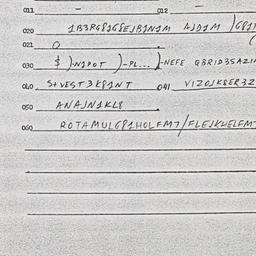 011 - 012 -
020 1B3RG81G8EJB1N1M AJD1M )G81
021 O
030 $ )-N1POT )-PL... )-NEFE QBRID3SAZI
040 S+VEST3KP1NT 041 VIZOJKRER3Z
050 ANAJN1KL8
060 ROTAMULGP1HOLFM7/FLEJKWELFM